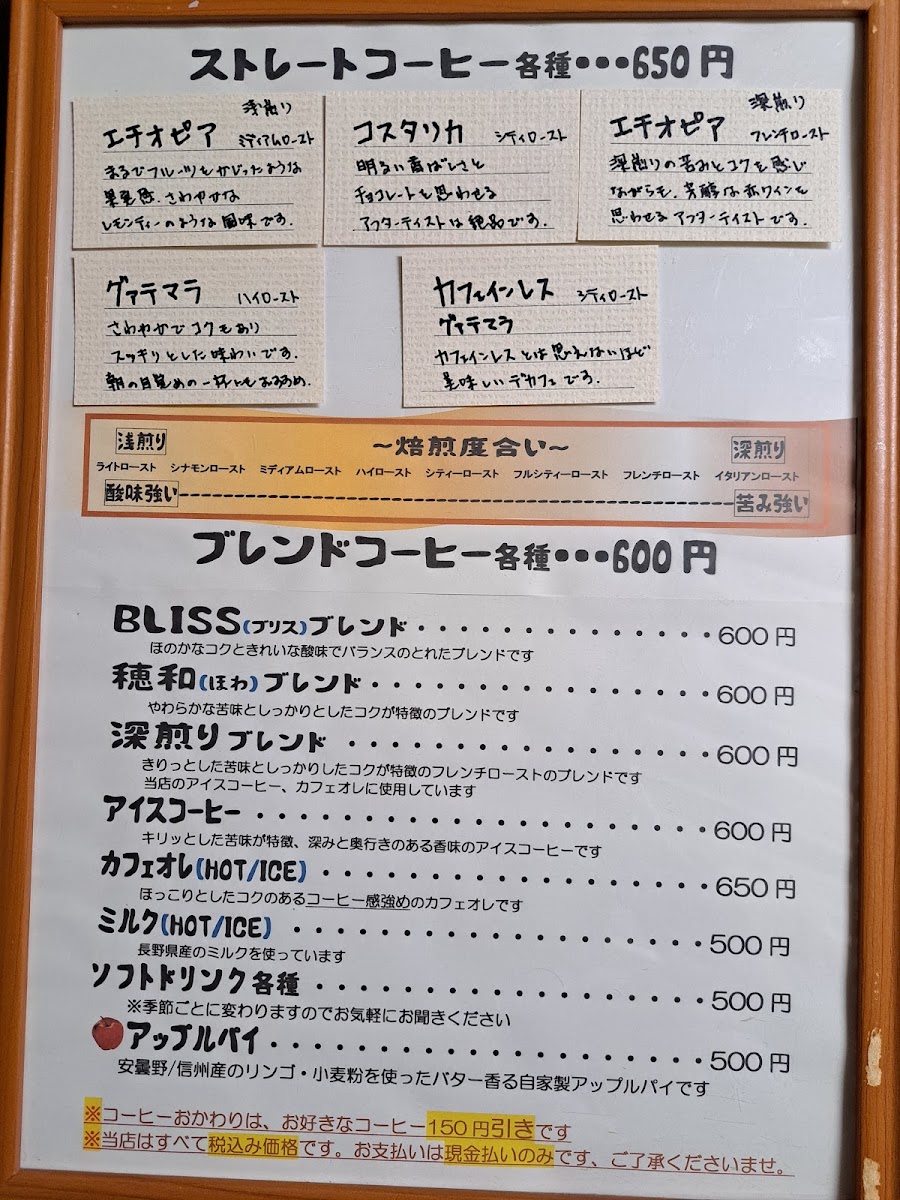 ストレートコーヒー各種•••650円
浅煎り
エチオピア ミディアムロースト
まるでフルーツをかじったような
果実感、さわやかな
レモンティーのような風味です.
コスタリカ シティロースト
明るい香ばしさと
チョコレートを思わせる
アフターテイストは絶品です.
深煎り
エチオピア フレンチロースト
深煎りの苦みとコクを感じ
ながらも、芳醇な赤ワインを
思わせるアフターテイストです.
グァテマラ ハイロースト
さわやかでコクもあり
スッキリとした味わいです.
朝の目覚めの一杯にもおすすめ.
カフェインレス シティロースト
グァテマラ
カフェインレスとは思えないほど
美味しいデカフェです.
浅煎り ～焙煎度合い～ 深煎り
ライトロースト シナモンロースト ミディアムロースト ハイロースト シティーロースト フルシティーロースト フレンチロースト イタリアンロースト
酸味強い 苦み強い
ブレンドコーヒー各種•••600円
BLISS(ブリス)ブレンド・・・・・・・・・・・・・・600円
ほのかなコクときれいな酸味でバランスのとれたブレンドです
穂和(ほわ)ブレンド・・・・・・・・・・・・・・・・600円
やわらかな苦味としっかりとしたコクが特徴のブレンドです
深煎りブレンド ・・・・・・・・・・・・・・・・・600円
きりっとした苦味としっかりしたコクが特徴のフレンチローストのブレンドです
当店のアイスコーヒー、カフェオレに使用しています
アイスコーヒー・・・・・・・・・・・・・・・・・・・・600円
キリッとした苦味が特徴、深みと奥行きのある香味のアイスコーヒーです
カフェオレ(HOT/ICE)・・・・・・・・・・・・・・・・・650円
ほっこりとしたコクのあるコーヒー感強めのカフェオレです
ミルク(HOT/ICE)・・・・・・・・・・・・・・・・・・500円
長野県産のミルクを使っています
ソフトドリンク各種・・・・・・・・・・・・・・・・・500円
※季節ごとに変わりますのでお気軽にお聞きください
アップルパイ・・・・・・・・・・・・・・・・・・・500円
安曇野/信州産のリンゴ・小麦粉を使ったバター香る自家製アップルパイです
※コーヒーおかわりは、お好きなコーヒー150円引きです
※当店はすべて税込み価格です。お支払いは現金払いのみです、ご了承くださいませ。